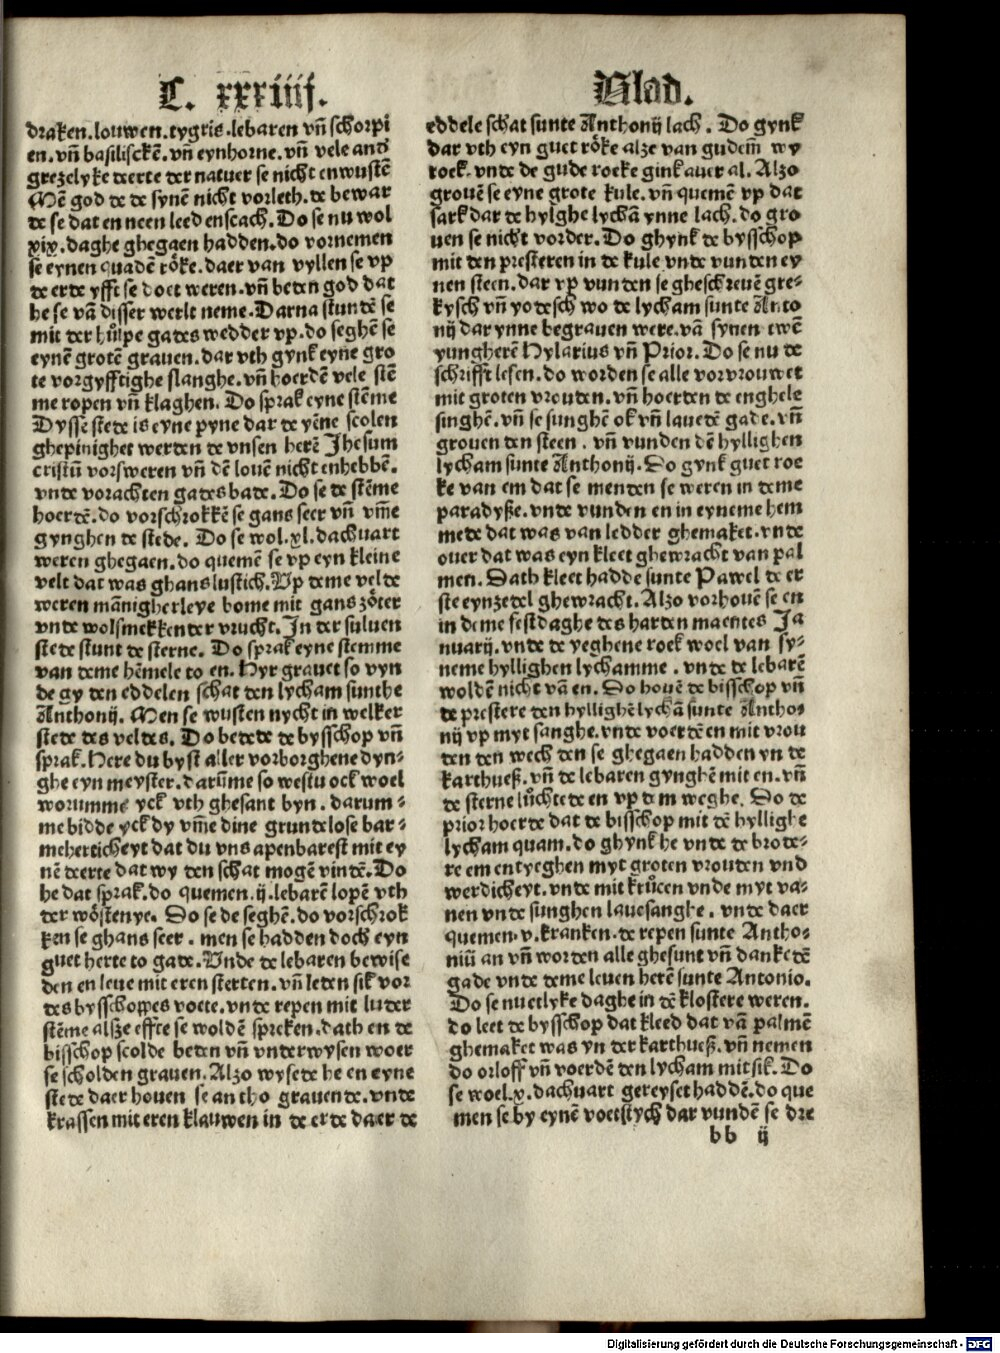 C. xxxiiij. Blad.
draken.louwen.tygris.lebaren vñ schorpi
en.vñ basilisckē.vñ eynhorne.vñ vele and̕
grezelyke deerte der natuer se nicht enwustē
Mē god de de synē nicht vorleth.de bewar
de se dat en neen leed enscach. Do se nu wol
xix.daghe ghegaen hadden.do vornemen
se eynen quadē röke.daer van vyllen se vp
de erde yfft se doet weren.vñ beden god dat
he se vā disser werlt neme.Darna stundē se
mit der hülpe gades wedder vp.do seghē se
eynē grotē grauen.dar vth gynk eyne gro
te vorgyfftighe slanghe.vñ hoerdē vele stē
me ropen vñ klaghen. Do sprak eyne stēme
Dyssē stede is eyne pyne dar de yēne scolen
ghepinighet werden de vnsen herē Jhesum
cristū vorsweren vñ dē louē nicht enhebbē.
vnde vorachten gades bade. Do se de stēme
hoerdē.do vorschrokkē se gans seer vñ vm̄e
gynghen de stede. Do se wol.xl.dachuart
weren ghegaen.do quemē se vp eyn kleine
velt dat was ghans lustich.Vp deme velde
weren mānigherleye bome mit gans zöter
vnde wolsmekkender vrucht.In der suluen
stede stunt de sterne. Do sprak eyne stemme
van deme hēmele to en. Hyr grauet so vyn
de gy den eddelen schat den lycham sunthe
Anthonij. Men se wusten nycht in welker
stede des veldes. Do bedede de bysschop vñ
sprak.Here du byst aller vorborghene dyn-
ghe eyn meyster.darūme so westu ock woel
worumme yck vth ghesant byn . darum-
me bidde yck dy vm̄e dine grundelose bar-
meherticheyt dat du vns apenbarest mit ey
nē deerte dat wy den schat mogē vindē.Do
he dat sprak.do quemen.ij.lebarē lopē vth
der wöstenye. Do se de seghē.do vorschrok
ken se ghans seer . men se hadden doch eyn
guet herte to gade.Vnde de lebaren bewise
den en leue mit eren sterten.vñ leden sik vor
des bysschoppes voete.vnde repen mit luder
stēme alsze effte se woldē spreken.dath en de
bisschop scolde beden vñ vnderwysen woer
se scholden grauen.Alzo wysede he en eyne
stede daer houen se an tho grauende.vnde
krassen mit eren klauwen in de erde daer de
eddele schat sunte Anthonij lach. Do gynk
dar vth eyn guet röke alze van gudem̄ wy
roek.vnde de gude roeke gink auer al. Alzo
grouē se eyne grote kule.vñ quemē vp dat
sark dar de hylghe lychā ynne lach.do gro
uen se nicht vorder. Do ghynk de bysschop
mit den presteren in de kule vnde vunden ey
nen steen.dar vp vunden se ghescreuē gre-
kysch vñ yodesch wo de lycham sunte Anto
nij dar ynne begrauen were.vā synen twē
yungherē Hylarius vñ Prior. Do se nu de
schrifft lesen.do worden se alle vorvrouwet
mit groten vrouden.vñ hoerden de enghele
singhē.vñ se sunghē ok vñ lauedē gade.vñ
grouen den steen . vñ vunden dē hyllighen
lycham sunte Anthonij. Do gynk guet roe
ke van em dat se menden se weren in deme
paradyße.vnde vunden en in eyneme hem
mede dat was van ledder ghemaket.vnde
ouer dat was eyn kleet ghewracht van pal
men. Dath kleet hadde sunte Pawel de er
ste eynzedel ghewracht. Alzo vorhouē se en
in deme festdaghe des harden maentes Ja
nuarij.vnde de yeghene roek woel van sy-
neme hyllighen lychamme . vnde de lebarē
woldē nicht vā en. Do houē de bisschop vñ
de prestere den hyllighē lychā sunte Antho-
nij vp myt sanghe.vnde voerdē en mit vrou
den den wech den se ghegaen hadden yn de
karthueß.vñ de lebaren gynghē mit en.vñ
de sterne lüchtede en vp dem weghe. Do de
prior hoerde dat de bisschop mit dē hyllighe
lycham quam.do ghynk he vnde de brode-
re em entyeghen myt groten vrouden vnd
werdicheyt.vnde mit krücen vnde myt va-
nen vnde sunghen lauesanghe . vnde daer
quemen.v.kranken.de repen sunte Antho-
niū an vñ worden alle ghesunt vñ dankedē
gade vnde deme leuen herē sunte Antonio.
Do se nu etlyke daghe in dē klostere weren.
do leet de bysschop dat kleed dat vā palmē
ghemaket was yn der karthueß.vñ nemen
do orloff vñ voerdē den lycham mit sik. Do
se woel.x.dachuart gereyset haddē.do que
men se by eynē voetstych dar vundē se dre
bb ij
Digitalisierung gefördert durch die Deutsche Forschungsgemeinschaft - DFG